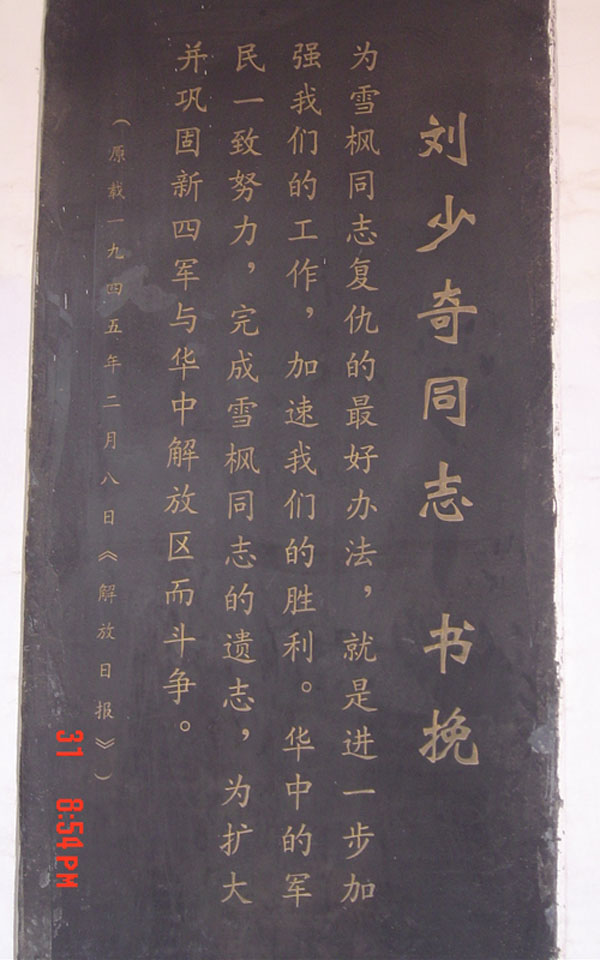 刘少奇同志 书挽
为雪枫同志复仇的最好办法，就是进一步加
强我们的工作，加速我们的胜利。华中的军
民一致努力，完成雪枫同志的遗志，为扩大
并巩固新四军与华中解放区而斗争。
（原载一九四五年二月八日《解放日报》）
31 8:54 PM